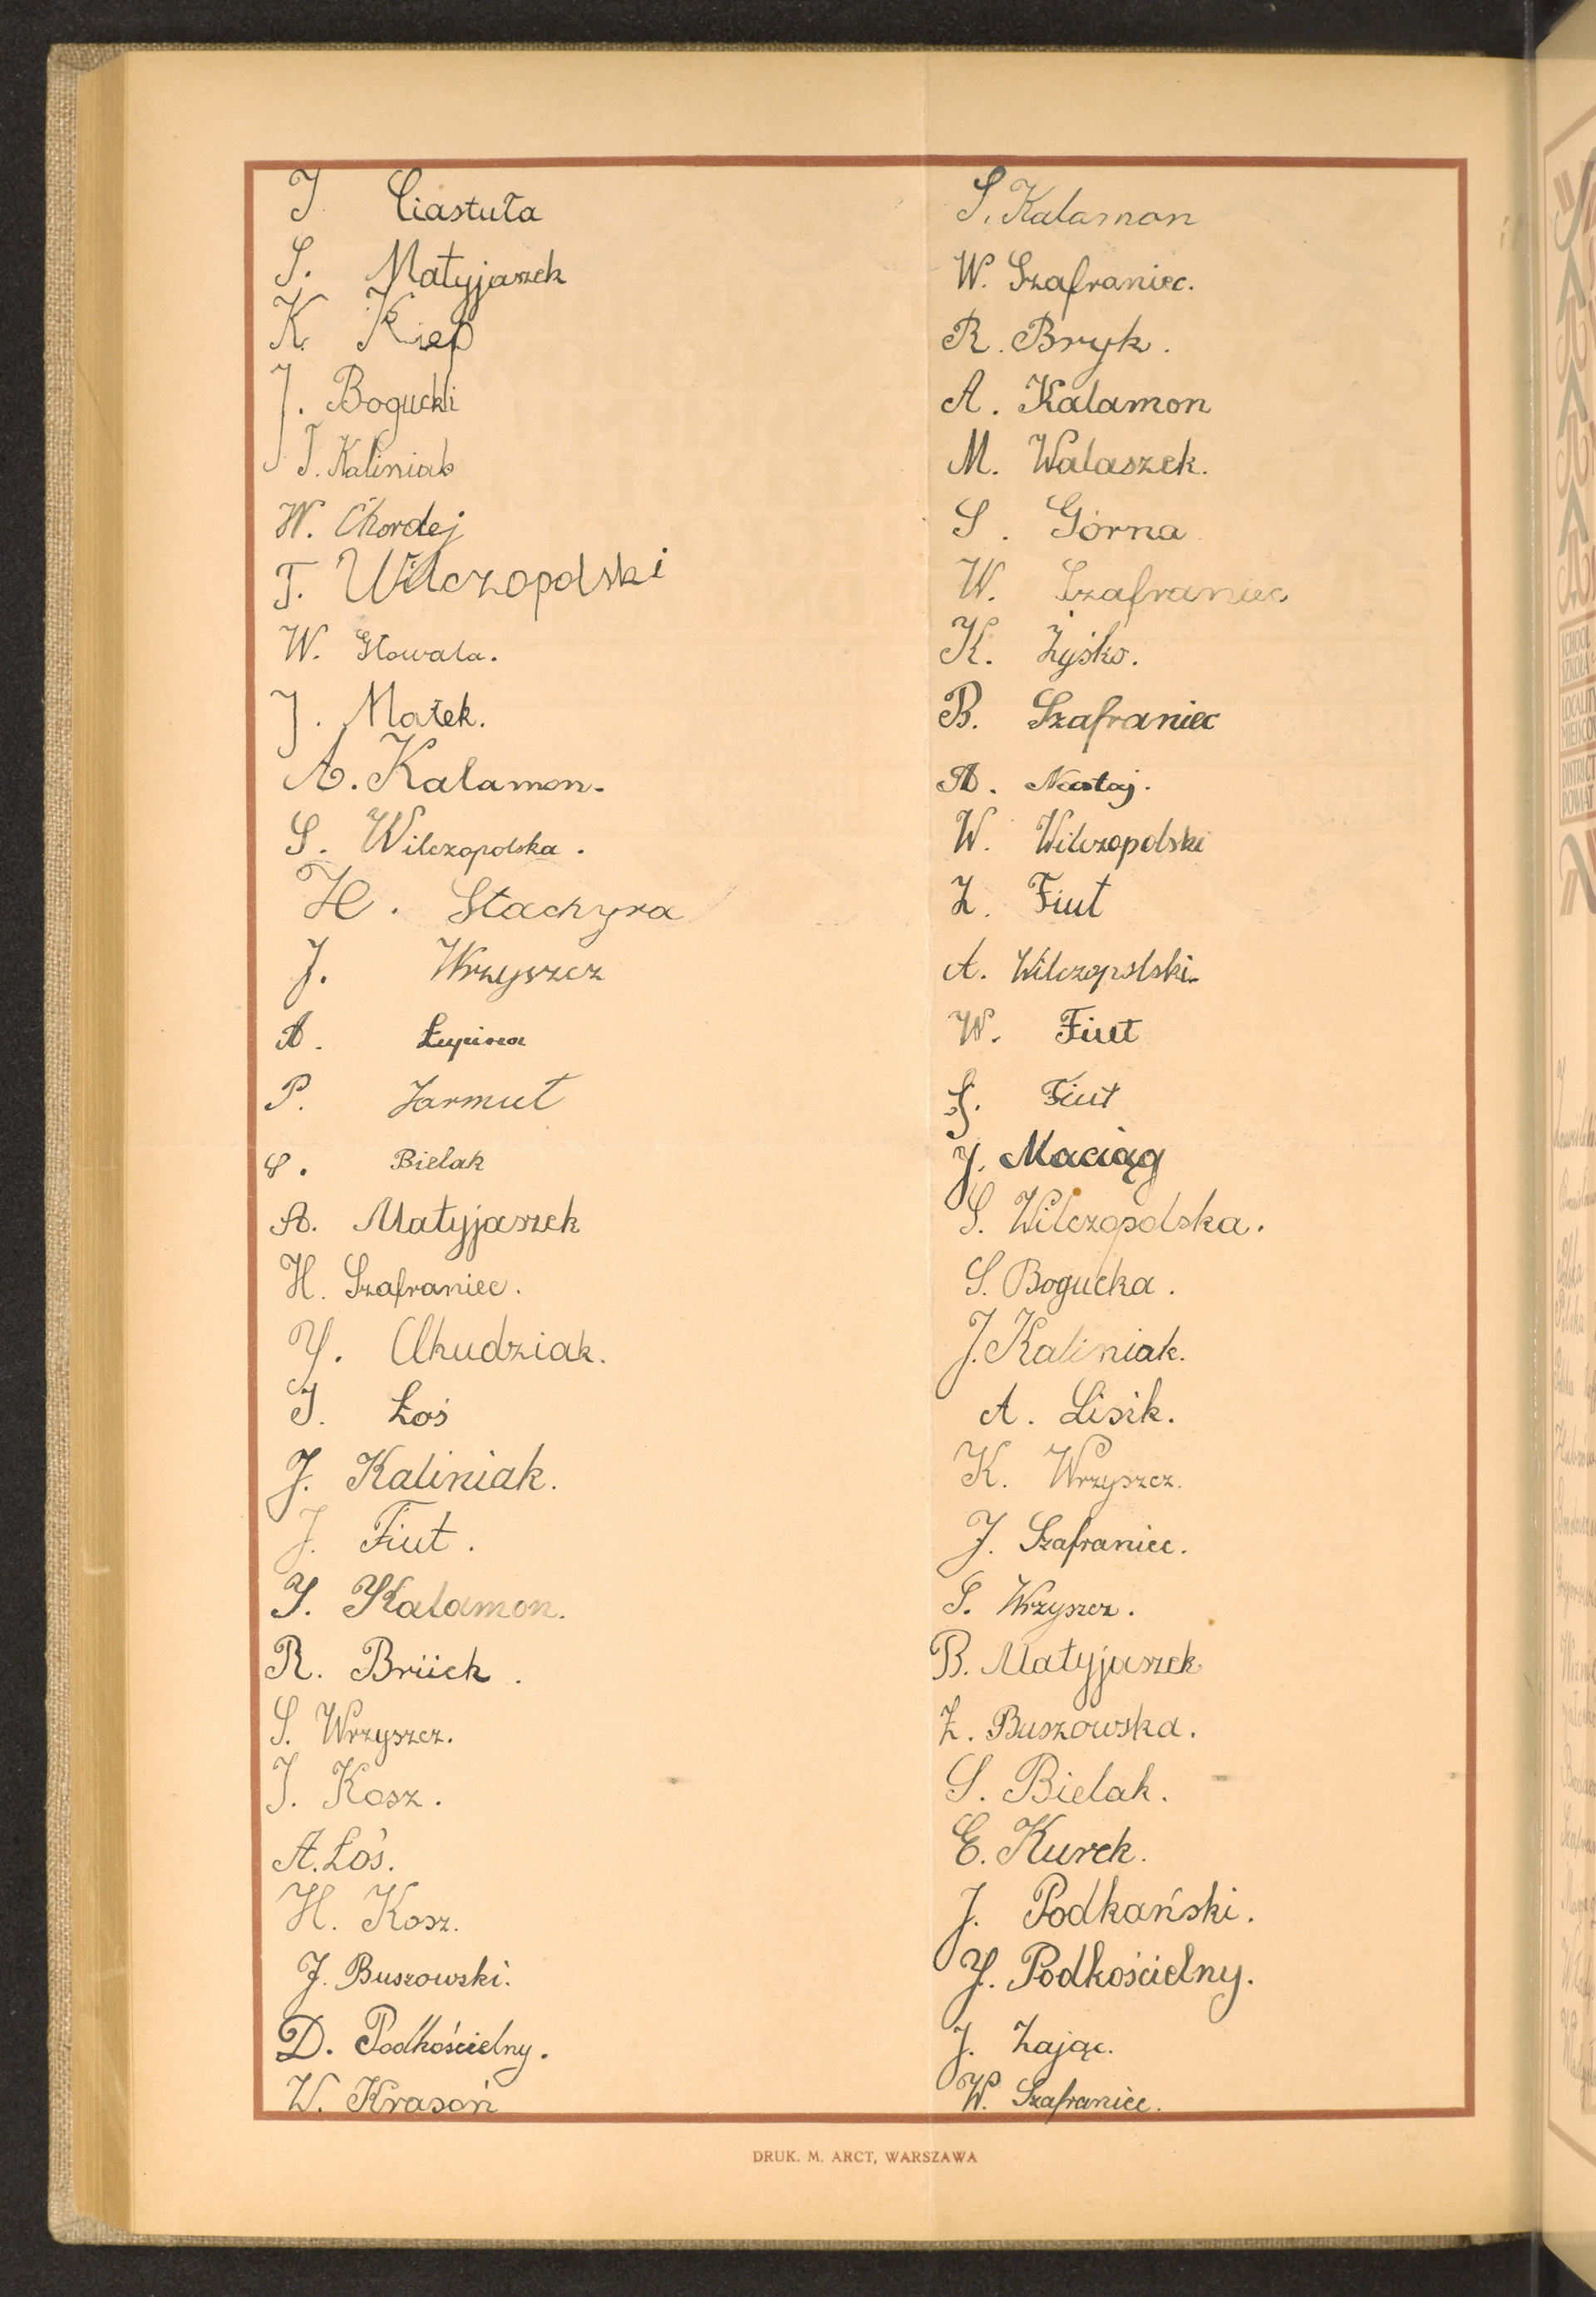 J. Ciastuła
S. Matyjaszek
K. Kiep
J. Bogucki
J. Kaliniak
W. Chordej
T. Wilczopolski
W. Głowala.
J. Małek.
A. Kalamon.
S. Wilczopolska.
H. Stachyra
J. Wrzyszcz
A. Łupina
P. Jarmuł
S. Bielak
A. Matyjaszek
H. Szafraniec.
J. Chudziak.
J. Łoś
J. Kaliniak.
J. Fiut.
J. Kalamon.
R. Brück.
S. Wrzyszcz.
J. Kosz.
A. Łoś.
H. Kosz.
J. Buszowski.
D. Podkościelny.
W. Krasoń
S. Kalamon
W. Szafraniec.
R. Bryk.
A. Kalamon
M. Walaszek.
S. Górna
W. Szafraniec
K. Żyśko.
B. Szafraniec
A. Nastaj.
W. Wilczopolski
Z. Fiut
A. Wilczopolski.
W. Fiut
S. Fiut
J. Maciąg
S. Wilczopolska.
S. Bogucka.
J. Kaliniak.
A. Lisik.
K. Wrzyszcz.
J. Szafraniec.
S. Wrzyszcz.
B. Matyjaszek
Z. Buszowska.
S. Bielak.
E. Kurek.
J. Podkański.
J. Podkościelny.
J. Zając.
W. Szafraniec.
DRUK. M. ARCT, WARSZAWA
SCHOOL
SZKOŁA